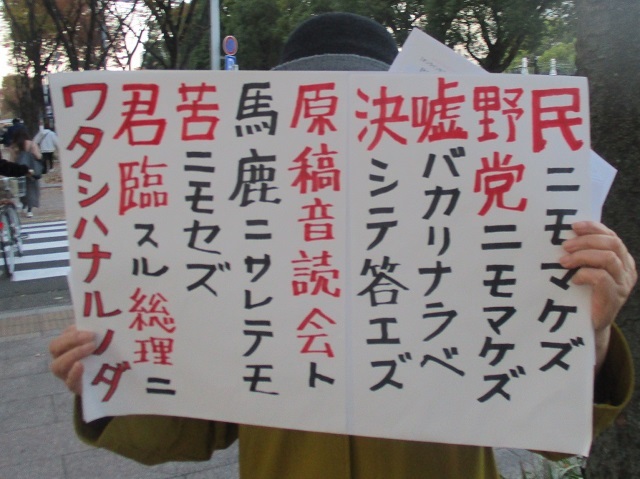 民ニモマケズ
野党ニモマケズ
嘘バカリナラベ
決シテ答エズ
原稿音読会ト
馬鹿ニサレテモ
苦ニモセズ
君臨スル総理ニ
ワタシハナルノダ